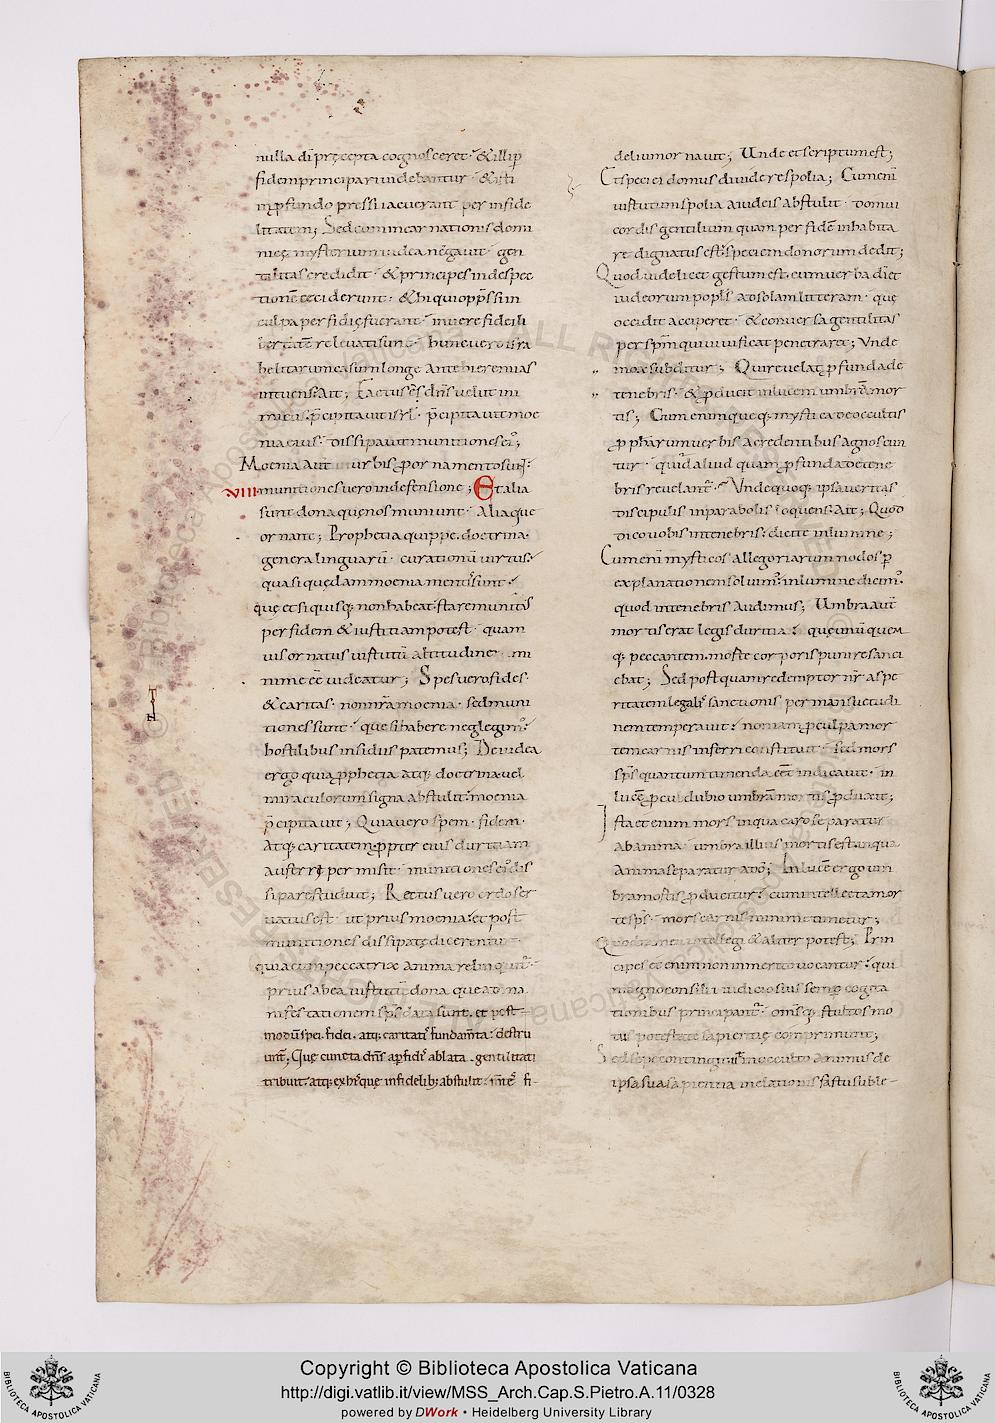 nulla dī pręcepta cognosceret · & illi p̱
fidem principari videbantur · & isti
in p̱fundo pressi iacuerant per infide
litatem; Sed cum incarnationis domi
nicę mysterium iudea negauit · gen
tilitas credidit · & principes in despec
tionē ceciderunt · & hi qui opp̄ssi in
culpa perfidię fuerant · in uere fidei li
bertatē releuati sunt · hunc uero isra
helitarum casum longe ante hieremias
intuens · Ait; Factus ē dn̄s uelut ini
micus · p̄cipitauit isrl̄ · p̄cipitauit moe
nia eius · dissipauit munitiones ei᾽;
Moenia aut in urbis p̱ ornamento sun̄t ·
VIIII munitiones uero in defensione; Et alia
sunt dona quę nos muniunt · Alia que
ornant; Prophetia quippe · doctrina ·
genera linguarū · curationū uirtus ·
quasi quędam moenia mentis sunt ·
quę et si quisq; non habeat · stare munitus
per fidem & iustitiam potest · quam
uis ornatus uirtutū altitudine · mi
nime eē uideatur; Spes uero fides ·
& caritas · non nr̄a moenia · sed muni
tiones sunt · que si habere neglegim᾽ ·
hostilibus insidiis patemus; De iudea
ergo quia p̱phetia atq; doctrina uel
miraculorum signa abstulit · moenia
p̄cipitauit; Quia uero spem · fidem ·
Atq; caritatem p̱pter eius duritiam
auferri p̱ permisit · munitiones ei᾽ dis
sipare studuit; Rectus uero ordo ser
uatus est · ut prius moenia · et post
munitiones dissipatę dicerentur ·
quia cum peccatrix anima relinquit̄ ·
prius ab ea uirtutū dona que ad ma
nifestationem sp̄s data sunt · et post
modū spei · fidei · atq; caritatis fundam̄ta · destru
unt̄; Quę cuncta dn̄s a p̱fidis ablata · gentilitati
tribuit · atq; ex his quę infidelib; abstulit · m̄tes fi-
delium ornauit; Unde et scriptum est;
Et speciei domus diuidere spolia; Cum enī
uirtutum spolia a iudeis abstulit · domui
cordis gentilium quam per fidē inhabita
re dignatus est · speciem donorum dedit;
Quod uidelicet gestum est · cum uerba dī et
iudeorum popl̄s ad solam litteram · quę
occidit acciperet · & conuersa gentilitas
per spm̄ qui uiuificat penetraret; Unde
mox subditur; Qui reuelat p̱funda de
tenebris · & p̱ducit in lucem umbrā mor
tis; Cum enim queq; mystica de occultis
p̱pharum uerbis a credentibus agnoscun
tur · quid aliud quam p̱funda de tene
bris reuelant̄ · Unde quoq; ipsa ueritas
discipulis in parabolis loquens · Ait; Quod
dico uobis in tenebris · dicite in lumine;
Cum enī mysticos allegoriarum nodos p̱
explanationem soluim᾽ · in lumine dicim᾽ ·
quod in tenebris audimus; Umbra aut̄
mortis erat legis duritia · quę unū quem
q; peccantem morte corporis punire sanci
ebat; Sed postquam redemptor nr̄ aspe
ritatem legalis sanctionis per mansuetudi
nem temperauit · non iam p̱ culpa mor
tem carnis inferri constituit · sed mors
sp̄s quantum timenda eēt indicauit · in
lucē p̱cul dubio umbrā mortis p̱duxit;
Ista et enim mors in qua caro separatur
ab anima · umbra illius mortis est · in qua
anima separatur a dō; In lucē ergo um
bra mortis p̱ducitur · cum intellecta mor
te sp̄s · mors carnis minime timetur;
Quod tamen intellegi & aliter potest; Prin
cipes et enim non immerito uocantur · qui
magno consilii iudicio sius semp̱ cogita
tionibus principant̄ · oms̄q; stultos mo
tus potestate sapientię comprimunt;
Sed sepe contingit · ut in occulto animus de
ipsa sua sapientia in elationis fastu suble-
Copyright © Biblioteca Apostolica Vaticana
http://digi.vatlib.it/view/MSS_Arch.Cap.S.Pietro.A.11/0328
powered by DWork • Heidelberg University Library